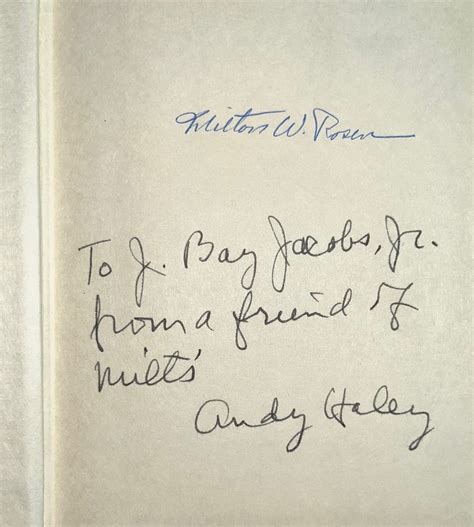 Milton W. Rosen
To J. Bay Jacobs, Jr.
from a friend of
Milt's
Andy Haley